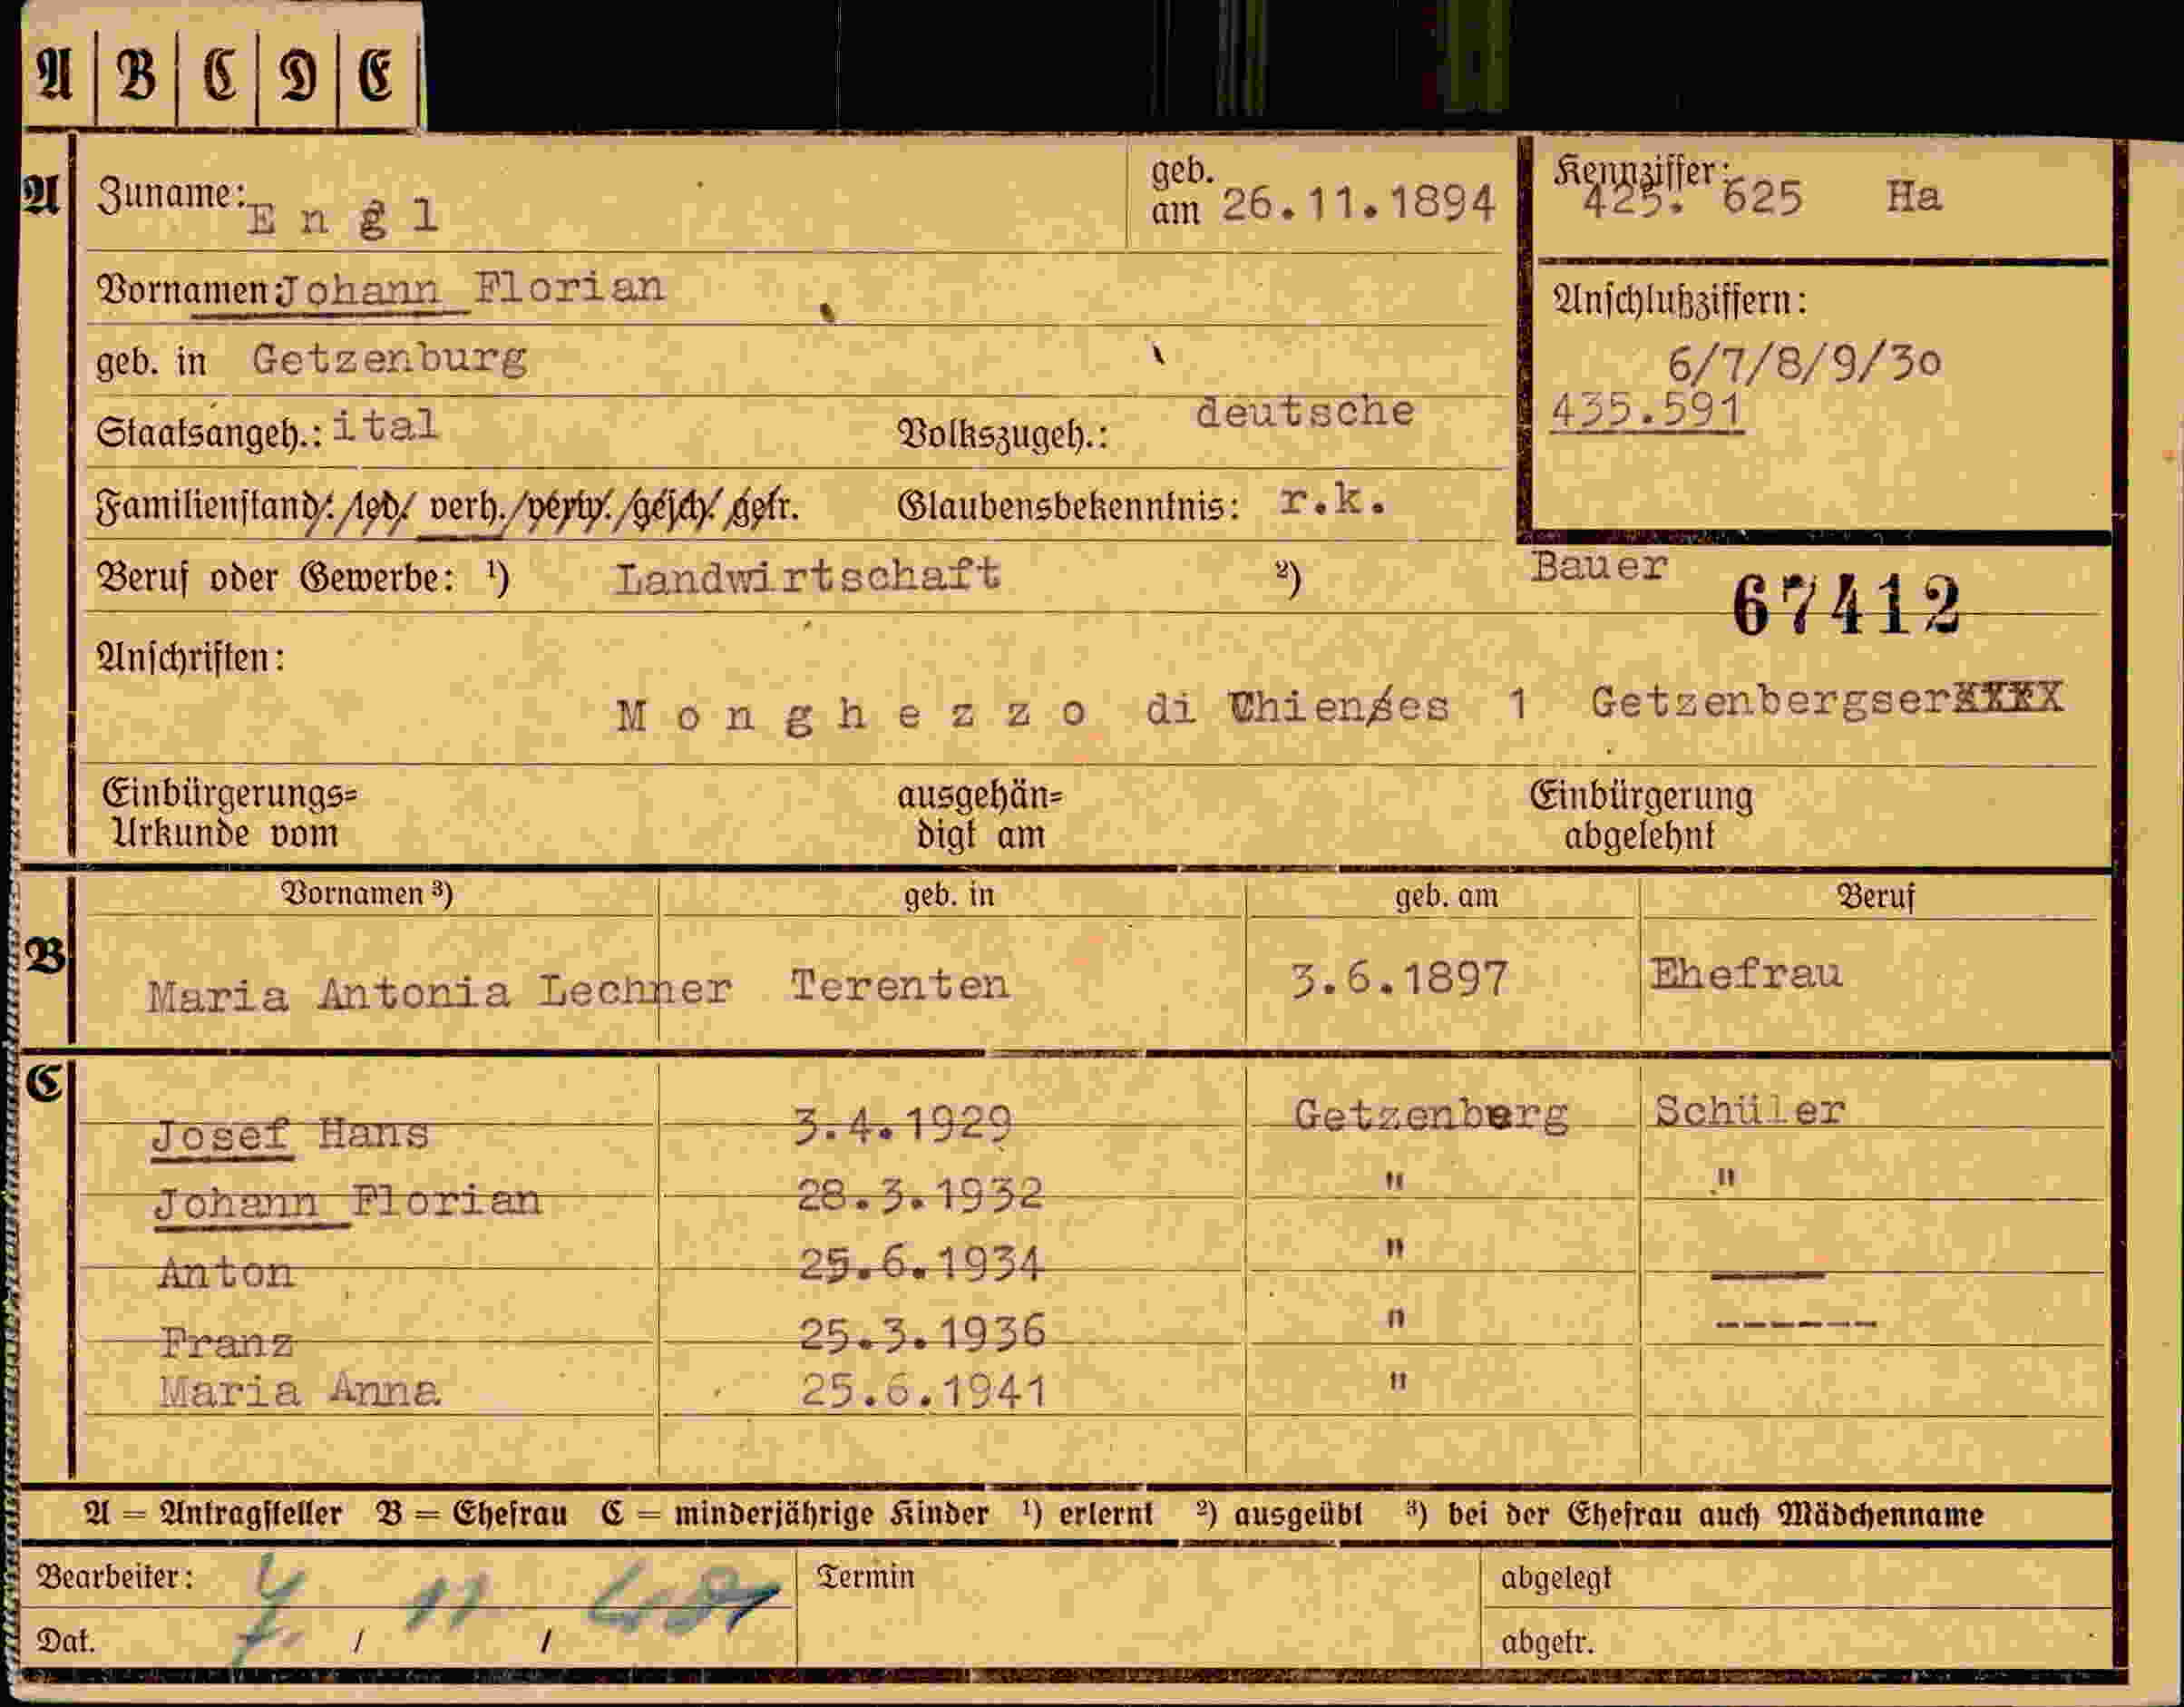 A B C D E
A Zuname: Engl geb. am 26.11.1894 Kennziffer: 425. 625 Ha
Vornamen: Johann Florian
Anschlußziffern:
geb. in Getzenburg 6/7/8/9/30
Staatsangeh.: ital Volkszugeh.: deutsche 435.591
Familienstand: /led/ verh./verw./gesch./getr. Glaubensbekenntnis: r.k.
Beruf oder Gewerbe: ¹) Landwirtschaft ²) Bauer
67412
Anschriften:
Monghezzo di Chienes 1 Getzenbergser
Einbürgerungs= ausgehän= Einbürgerung
Urkunde vom digt am abgelehnt
Vornamen ³) geb. in geb. am Beruf
B Maria Antonia Lechner Terenten 3.6.1897 Ehefrau
C
Josef Hans 3.4.1929 Getzenberg Schüler
Johann Florian 28.3.1932 " "
Anton 25.6.1934 " ———
Franz 25.3.1936 " -------
Maria Anna 25.6.1941 "
A = Antragsteller B = Ehefrau C = minderjährige Kinder ¹) erlernt ²) ausgeübt ³) bei der Ehefrau auch Mädchenname
Bearbeiter: Termin abgelegt
Dat. / / abgetr.